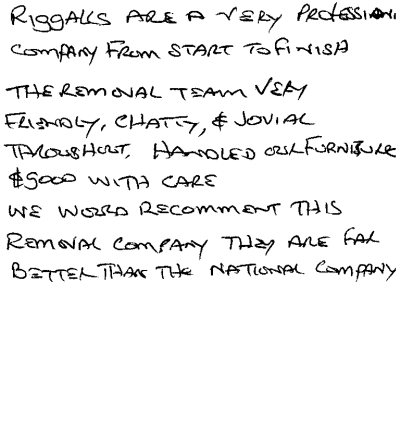 RIGGALLS ARE A VERY PROFESSION
COMPANY FROM START TO FINISH
THE REMOVAL TEAM VERY
FRIENDLY, CHATTY, & JOVIAL
THROUGHOUT, HANDLED OUR FURNITURE
& GOOD WITH CARE
WE WOULD RECOMMENT THIS
REMOVAL COMPANY THEY ARE FAR
BETTER THAN THE NATIONAL COMPANY